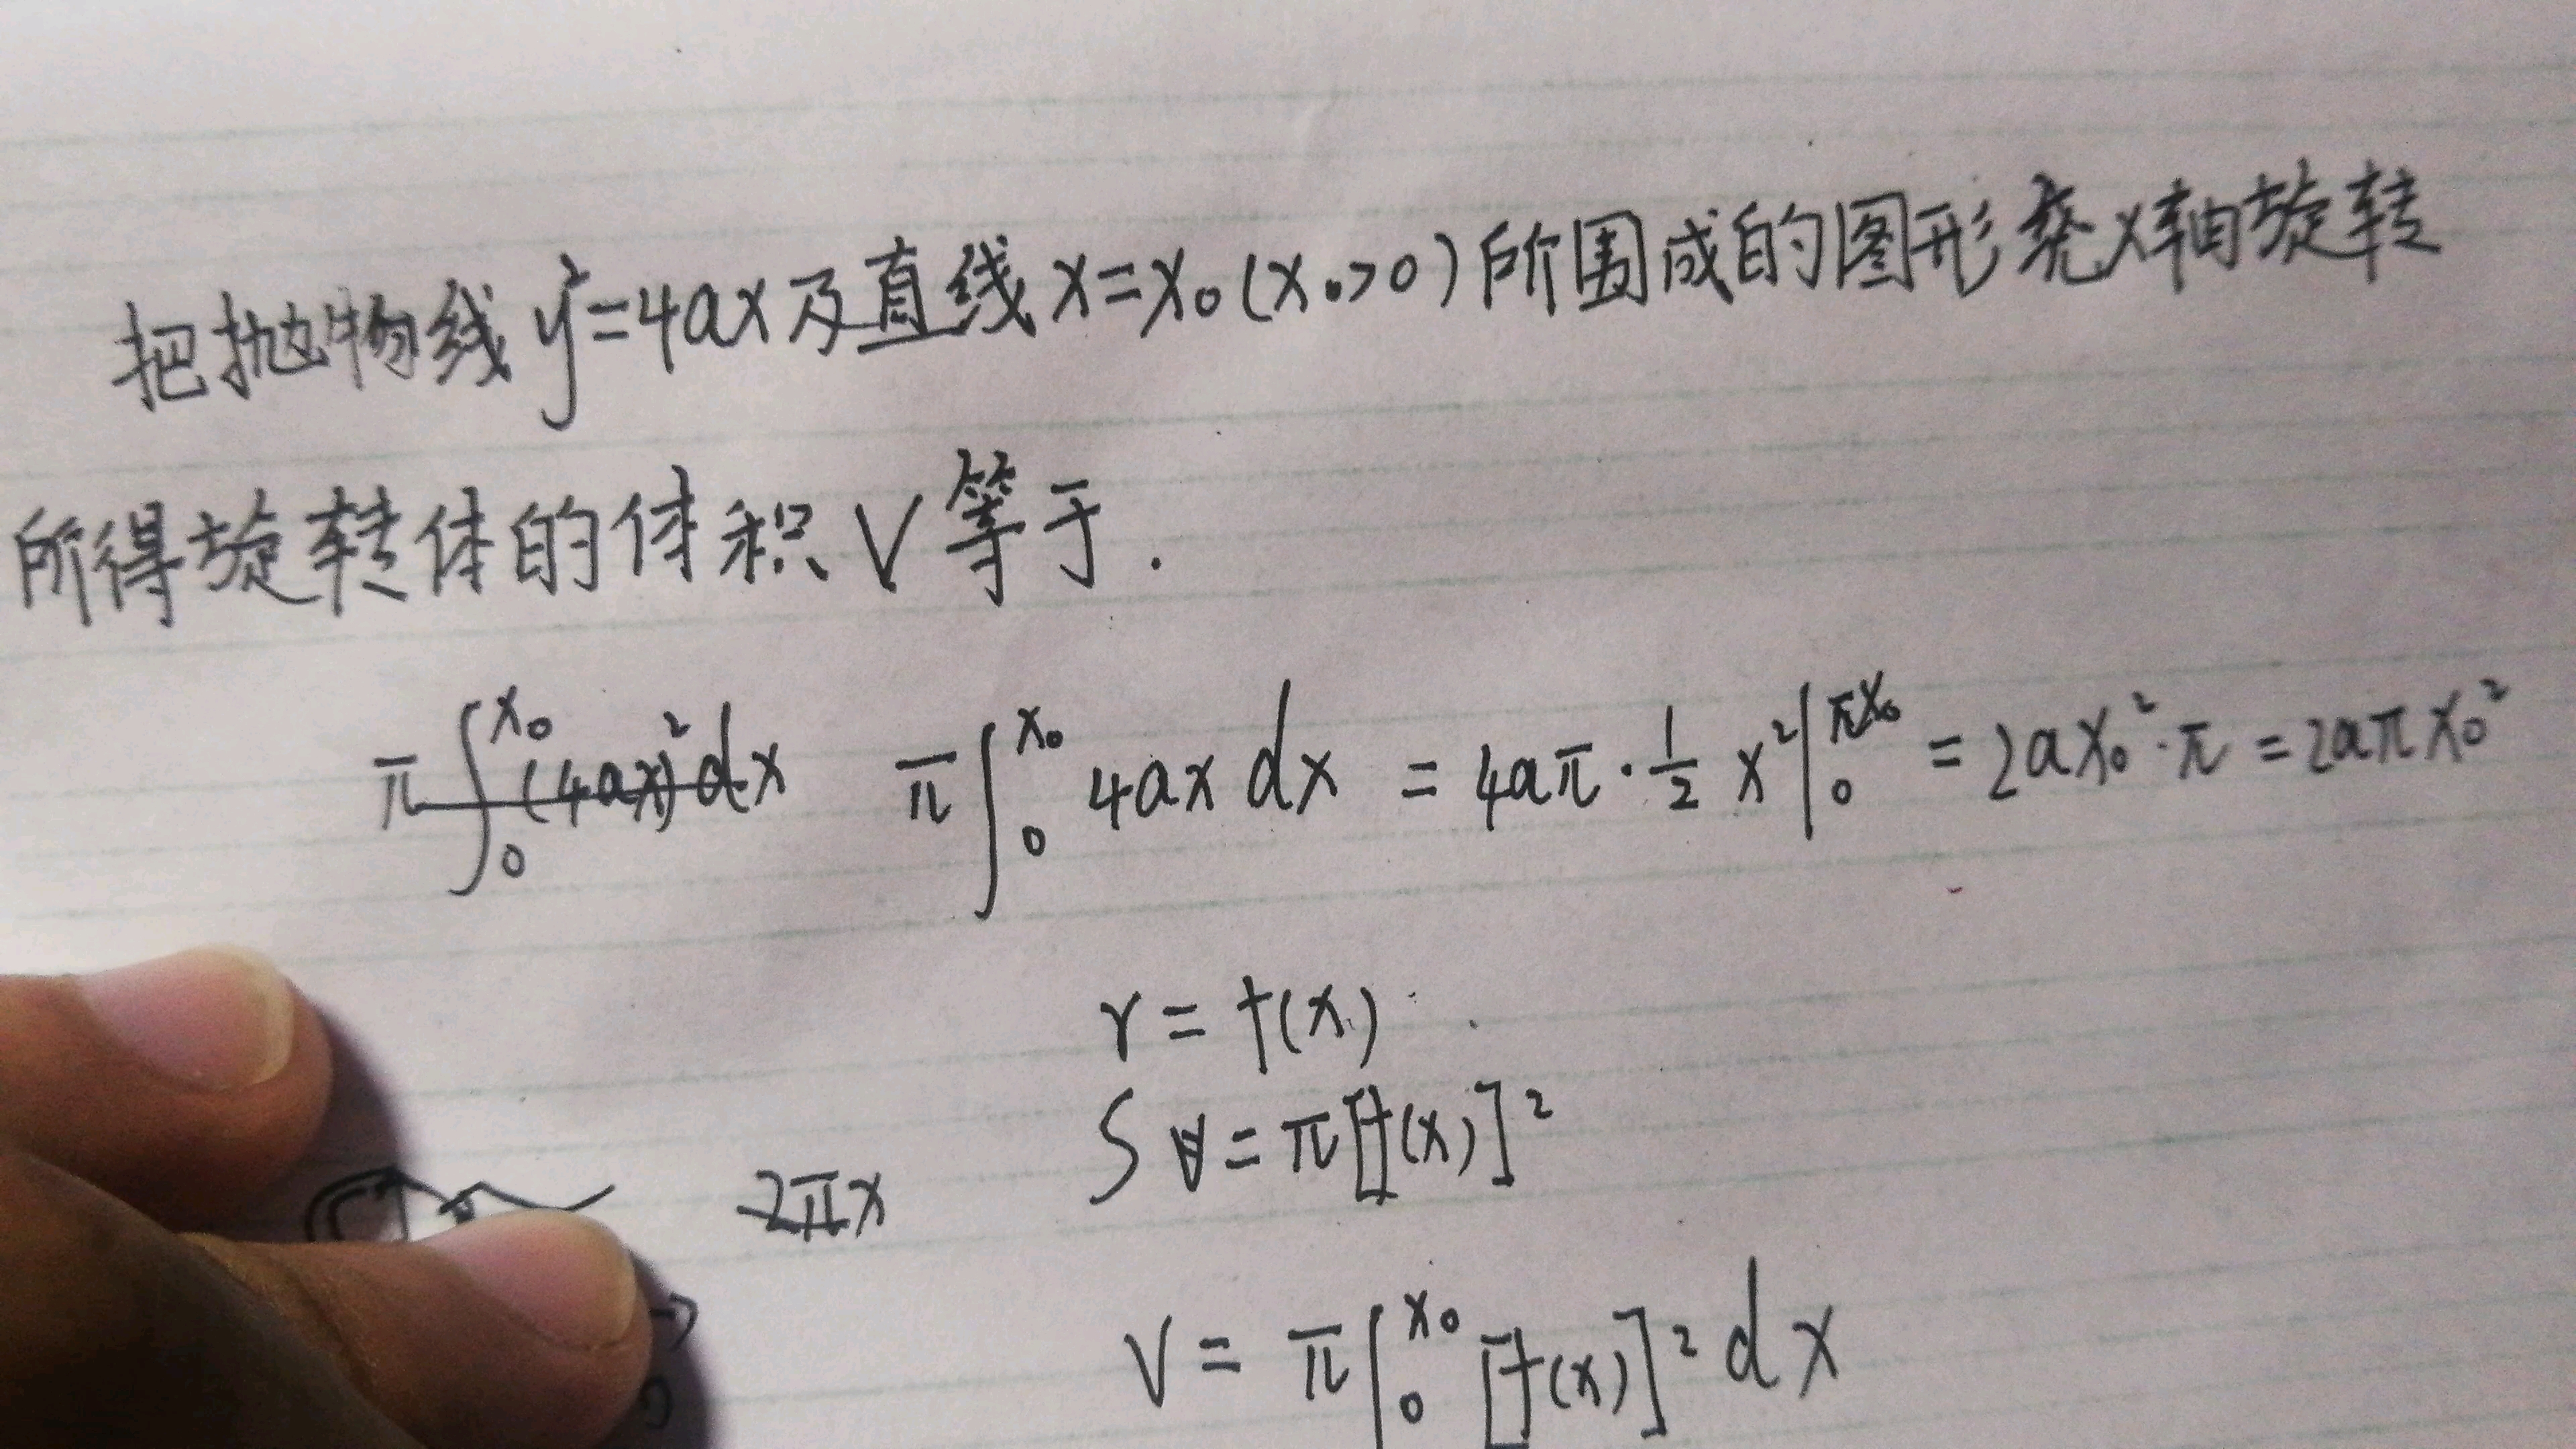 把抛物线 y²=4ax 及直线 x=x₀(x₀>0)所围成的图形尧x轴旋转
所得旋转体的体积V等于.
π∫₀^x₀ (4ax)²dx π∫₀^x₀ 4ax dx = 4aπ·1/2 x²|₀^πx₀ = 2ax₀²·π = 2aπx₀²
r = f(x)
S = π[f(x)]²
2πx
V = π∫₀^x₀ [f(x)]² dx